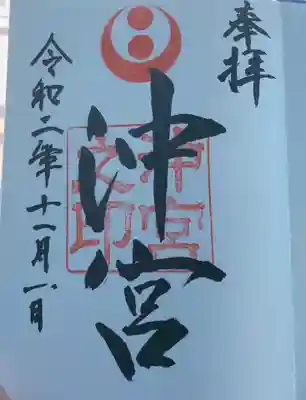 奉拝
沖宮
沖宮之印
令和二年十一月一日